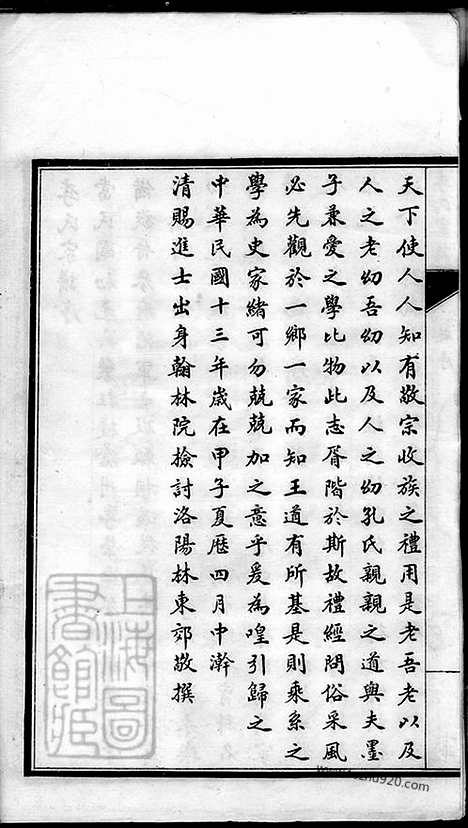 天下使人人知有敬宗收族之禮用是老吾老以及
人之老幼吾幼以及人之幼孔氏親親之道與夫墨
子兼愛之學比物此志胥階於斯故禮經問俗采風
必先觀於一鄉一家而知王道有所基是則乘系之
學為史家緒可勿兢兢加之意乎爰為喤引歸之
中華民國十三年歲在甲子夏歷四月中澣
清賜進士出身翰林院撿討洛陽林東郊敬撰
上海圖
書館藏